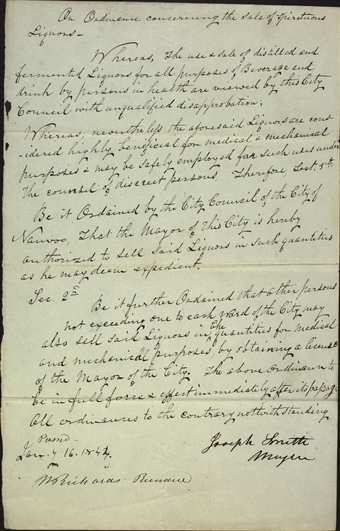 An Ordinance concerning the sale of Spirituous
Liquors—
Whereas, The use & sale of distilled and
fermented Liquors for all purposes of Beverage and
drink by persons in health are viewed by this City
Council with unqualified disapprobation;
Whereas, nevertheless the aforesaid Liquors are cons
idered highly beneficial for medical & mechanical
purposes & may be safely employed for such uses under
the counsel of discreet persons, Therefore Sect 1st
Be it Ordained by the City Council of the City of
Nauvoo, That the Mayor of this City is hereby
authorized to sell said Liquors in such quantities
as he may deem expedient.
Sec. 2d
Be it further Ordained that other persons
not exceeding one to each ward of the City may
also sell said Liquors in like quantities for medical
and mechanical purposes by obtaining a license
of the Mayor of the City. The above Ordinance to
be in full force & effect immediately after its passage
All ordinances to the contrary notwithstanding
Passed
Jany 16. 1844.
Joseph Smith
Mayor
W Richards Recorder